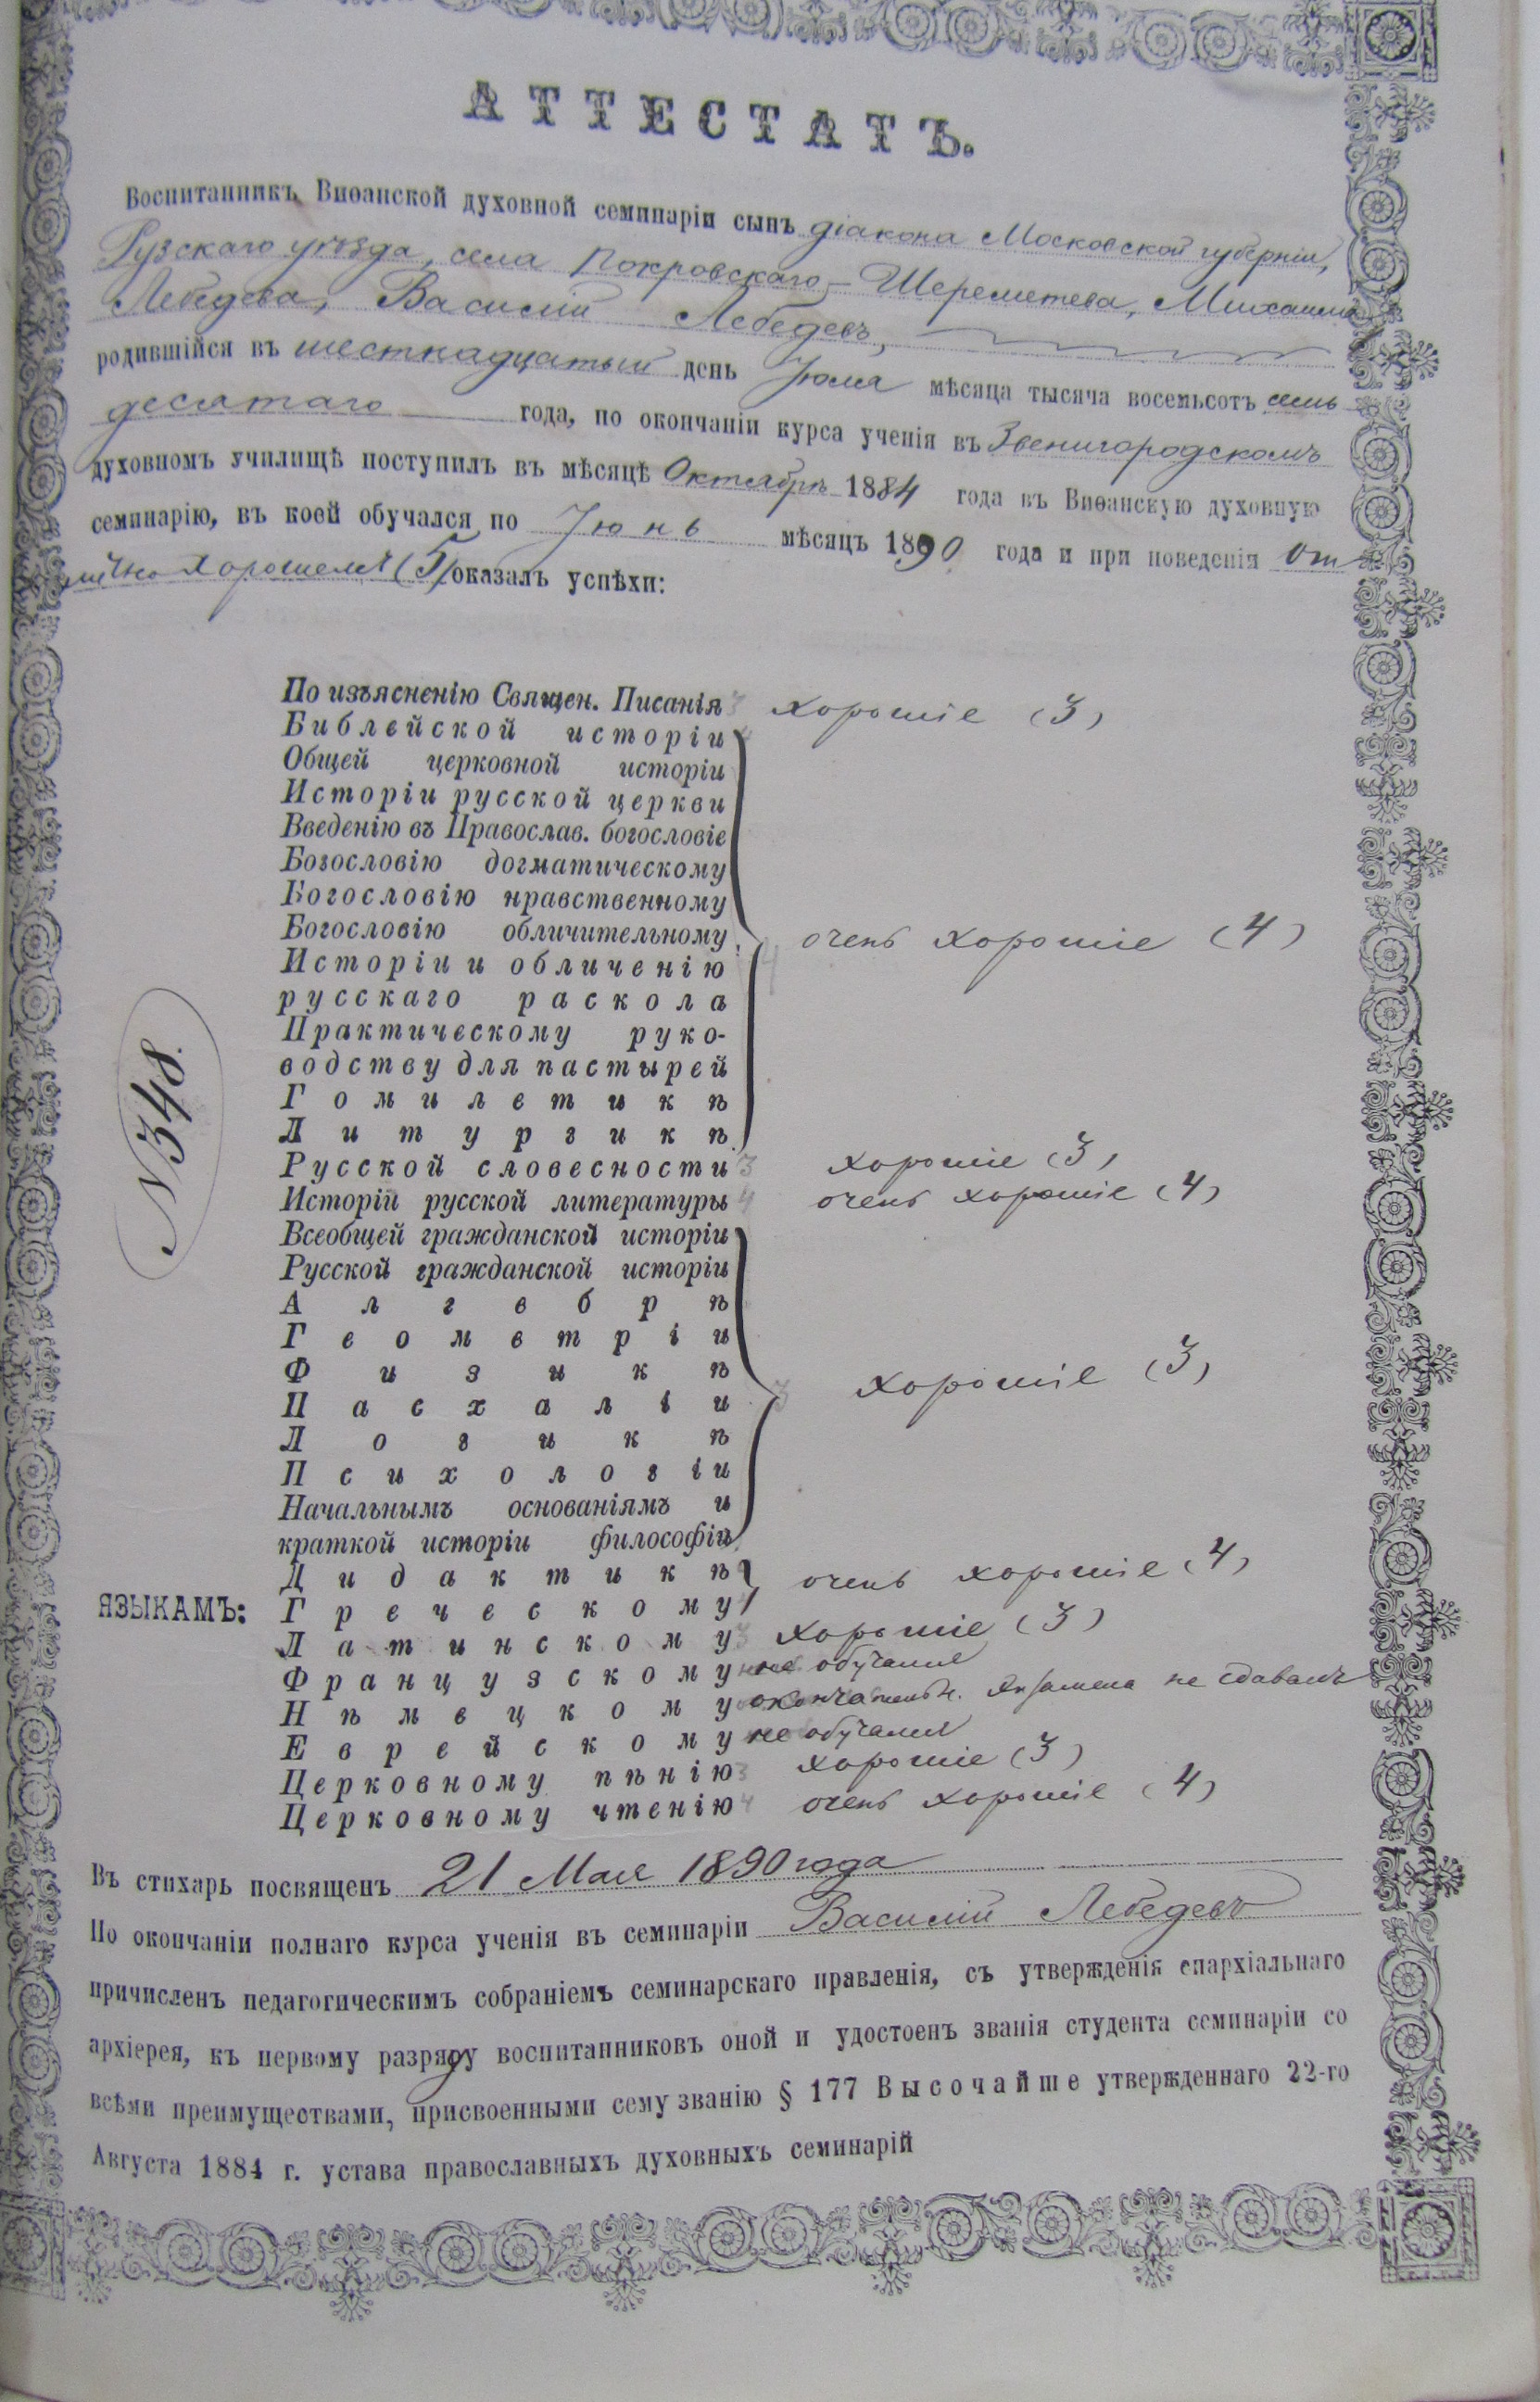 АТТЕСТАТЪ.
Воспитанникъ Виѳанской духовной семинаріи сынъ діакона Московской губерніи,
Рузскаго уѣзда, села Покровскаго-Шереметева, Михаила
Лебедева, Василій Лебедевъ,
родившійся въ шестнадцатый день Іюля мѣсяца тысяча восемьсотъ семь
десятаго года, по окончаніи курса ученія въ Звенигородскомъ
духовномъ училищѣ поступилъ въ мѣсяцѣ Октябрѣ 1884 года въ Виѳанскую духовную
семинарію, въ коей обучался по Іюнь мѣсяцъ 1890 года и при поведеніи от
лично хорошемъ (5) оказалъ успѣхи:
По изъясненію Священ. Писанія 3 хорошіе (3)
Библейской исторіи
Общей церковной исторіи
Исторіи русской церкви
Введенію въ Православ. богословіе
Богословію догматическому
Богословію нравственному
Богословію обличительному 4 очень хорошіе (4)
Исторіи и обличенію
русскаго раскола
Практическому руко-
водству для пастырей
Гомилетикѣ
Литургикѣ
Русской словесности 3 хорошіе (3)
Исторіи русской литературы 4 очень хорошіе (4)
Всеобщей гражданской исторіи
Русской гражданской исторіи
Алгебрѣ
Геометріи
Физикѣ
Пасхаліи 3 хорошіе (3)
Логикѣ
Психологіи
Начальнымъ основаніямъ и
краткой исторіи философіи
Дидактикѣ очень хорошіе (4)
ЯЗЫКАМЪ: Греческому
Латинскому 3 хорошіе (3)
Французскому не обучался
Нѣмецкому окончательн. экзамена не сдавалъ
Еврейскому не обучался
Церковному пѣнію 3 хорошіе (3)
Церковному чтенію 4 очень хорошіе (4)
N 348.
Въ стихарь посвященъ 21 Мая 1890 года
По окончаніи полнаго курса ученія въ семинаріи Василій Лебедевъ
причисленъ педагогическимъ собраніемъ семинарскаго правленія, съ утвержденія епархіальнаго
архіерея, къ первому разряду воспитанниковъ оной и удостоенъ званія студента семинаріи со
всѣми преимуществами, присвоенными сему званію § 177 Высочайше утвержденнаго 22-го
Августа 1884 г. устава православныхъ духовныхъ семинарій